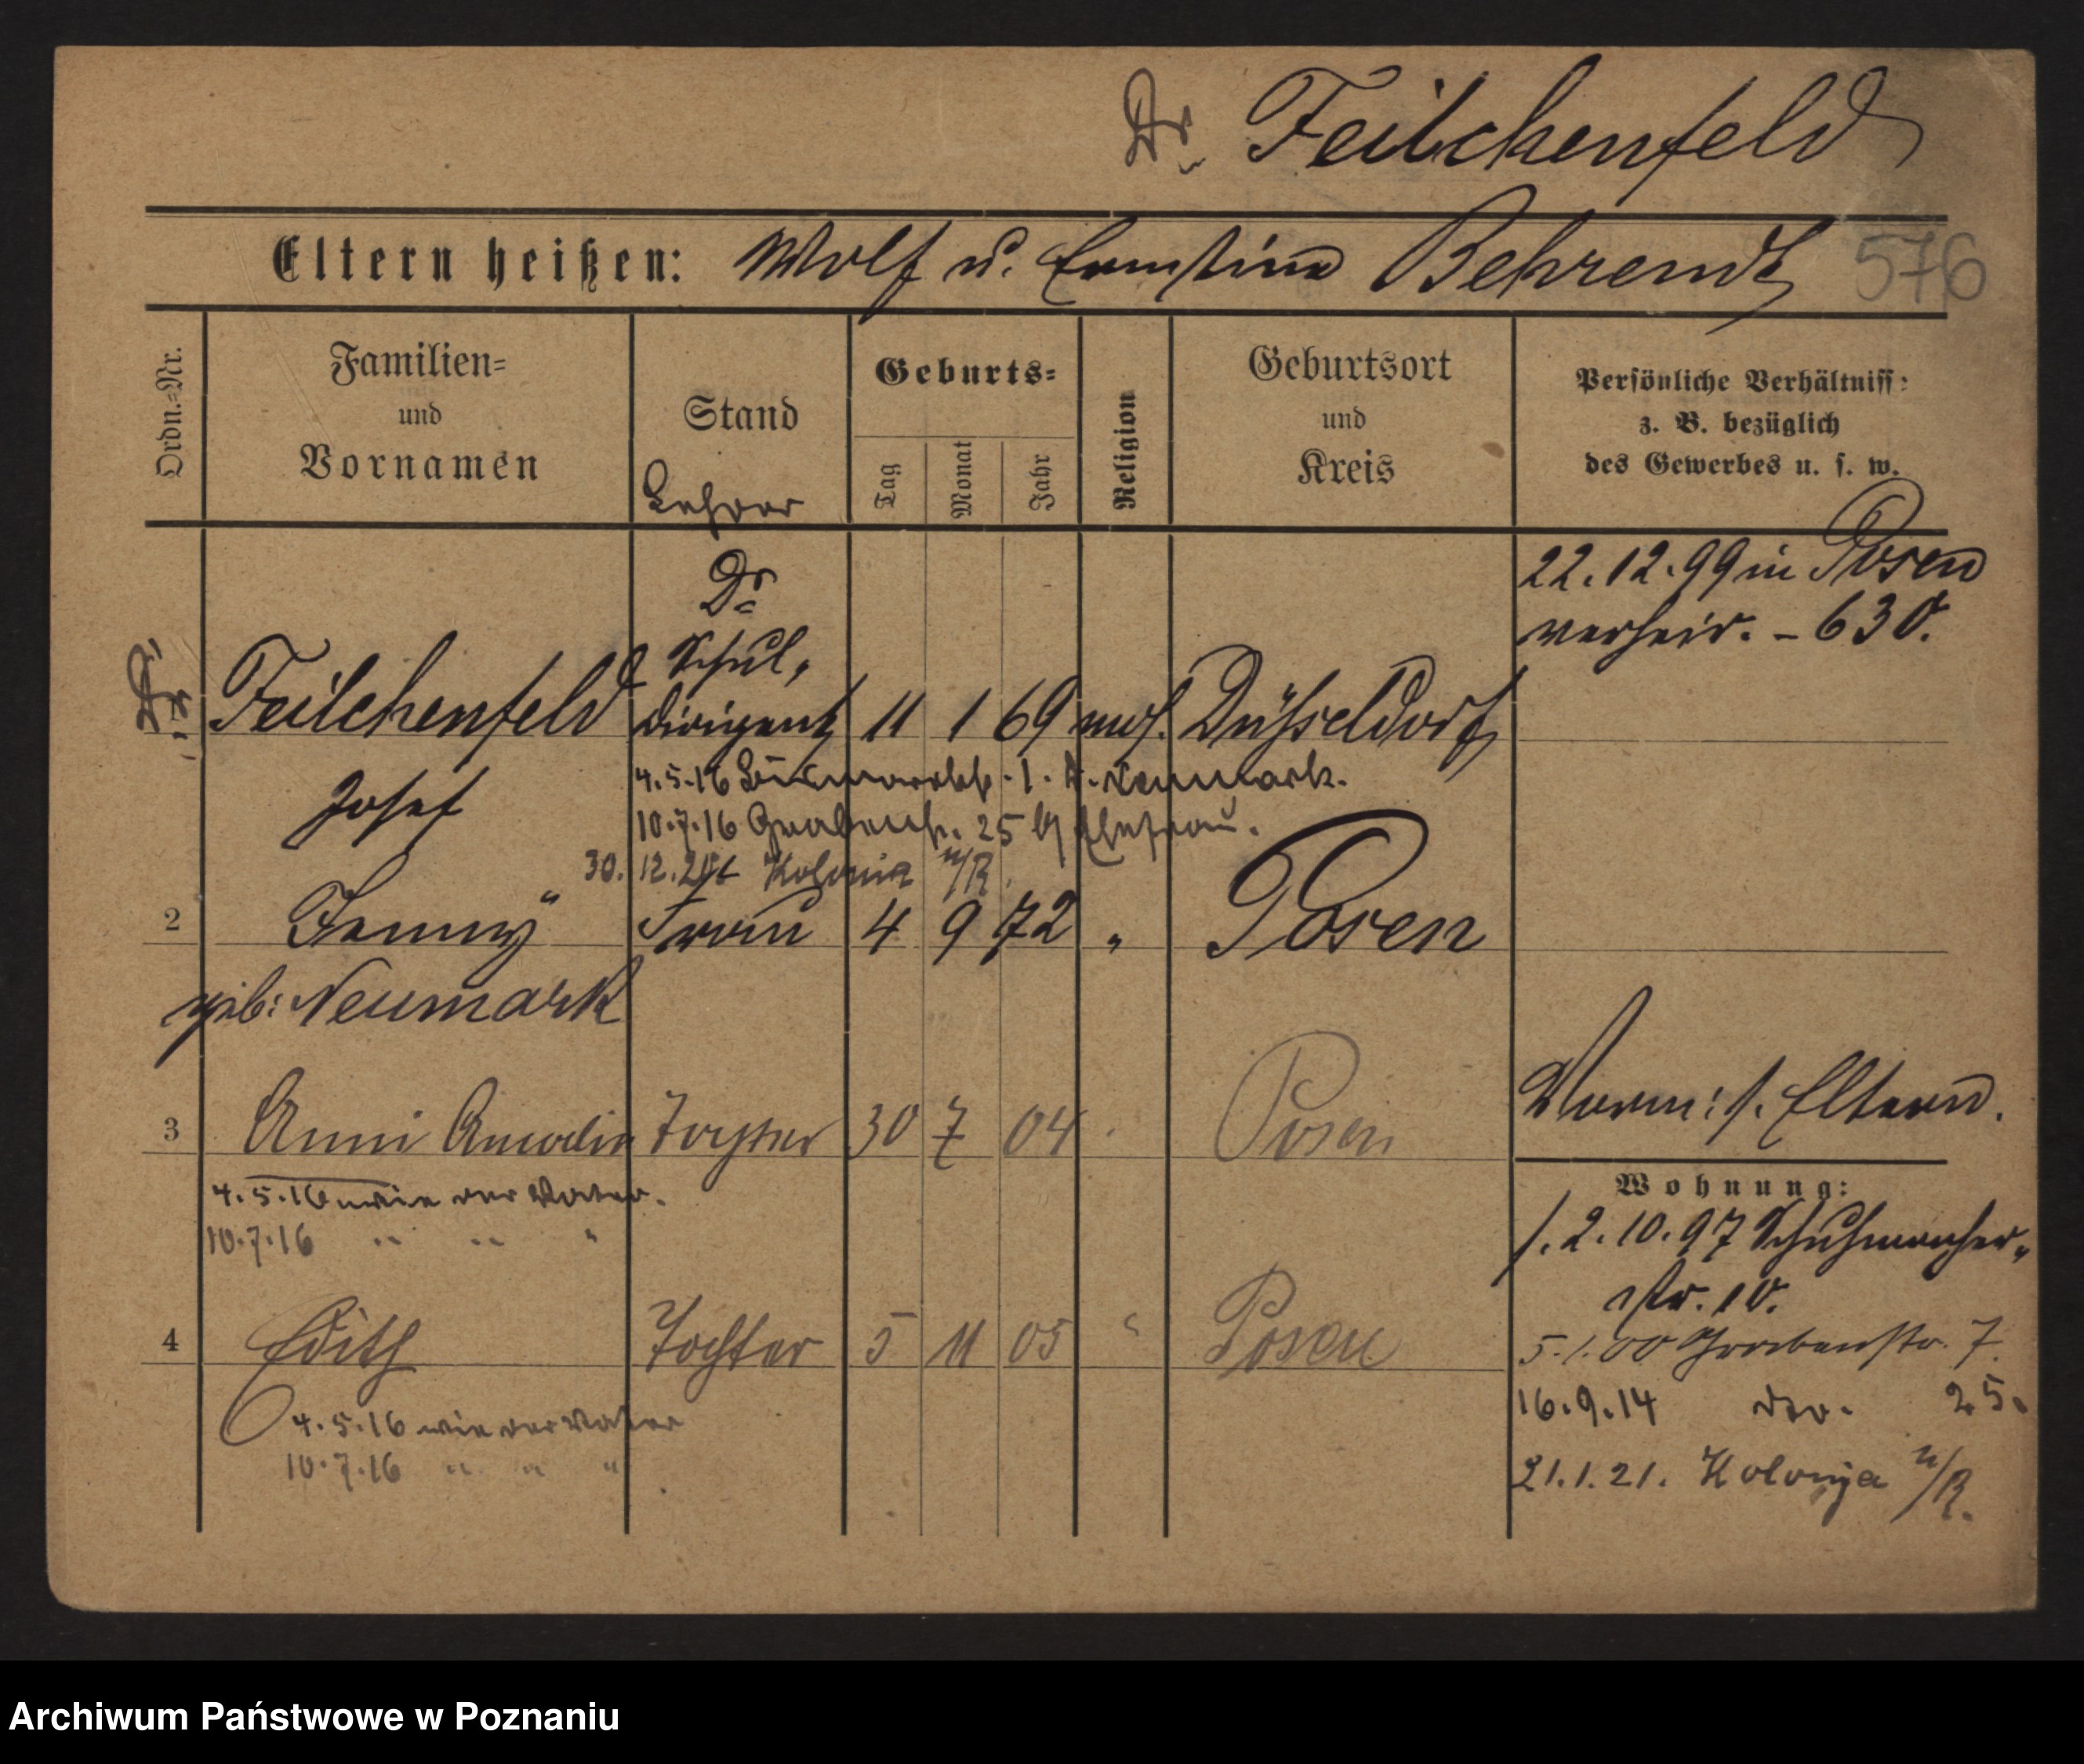 Dr Feilchenfeld
Eltern heißen: Wolf u. Ernstine Behrendt 576
Ordn.-Nr.
Familien-
und
Vornamen
Stand
Lehrer
Geburts-
Tag
Monat
Jahr
Religion
Geburtsort
und
Kreis
Persönliche Verhältniss:
z. B. bezüglich
des Gewerbes u. s. w.
22.12.99 in Posen
verheir. - 630.
Dr
Schul-
Dr. Feilchenfeld dirigent 11 1 69 mos. Düsseldorf
Josef
4.5.16 Bismarckstr. 1. b. Neumark.
10.7.16 Grabenstr. 25 Ehefrau.
30.12.20 Kolonia n/R.
2 Jenny " Frau 4 9 72 " Posen
geb: Neumark
3 Anni Amalie Tochter 30 7 04 " Posen
4.5.16 wie der Vater.
10.7.16 " " "
4 Edith Tochter 5 11 05 " Posen
4.5.16 wie der Vater
10.7.16 " " "
Vorm: s. Eltern.
Wohnung:
s. 2.10.97 Schuhmacher-
str. 10.
5.1.00 Grabenstr. 7.
16.9.14 do. 25.
21.1.21. Kolonja n/R.
Archiwum Państwowe w Poznaniu